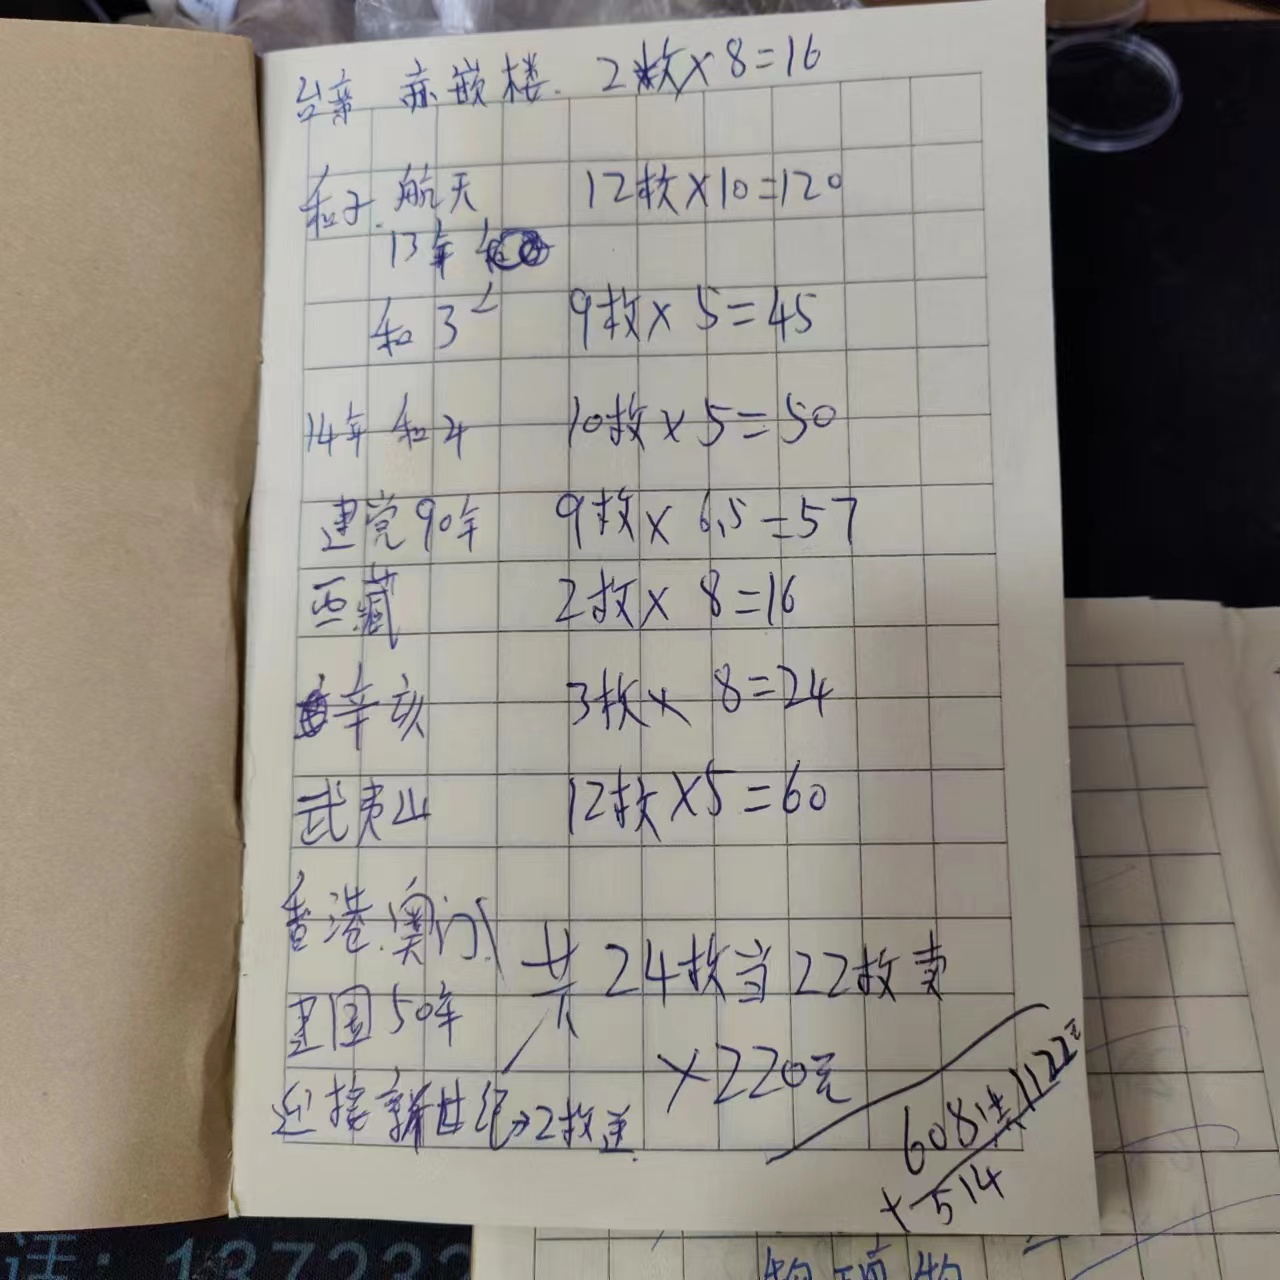 台湾 赤嵌楼. 2枚×8=16
和子.航天 12枚×10=120
13年
和3 9枚×5=45
14年 和4 10枚×5=50
建党90年 9枚×6.5=57
西藏 2枚×8=16
辛亥 3枚×8=24
武夷山 12枚×5=60
香港.澳门
共24枚当22枚卖
建国50年
×220元
迎接新世纪→2枚送
608 1122元
+514
话: 137232